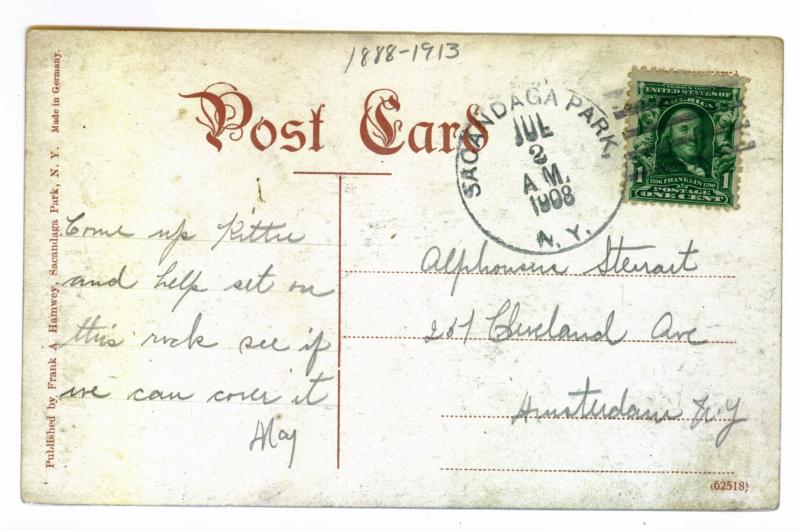 1888-1913
Post Card
SACANDAGA PARK.
JUL
2
A M.
1908
N. Y.
UNITED STATES OF
AMERICA
1 1
1706 FRANKLIN 1790
POSTAGE
ONE CENT
Come up Kittie
and help set on
this rock see if
we can cover it
May
Stewart
Cleveland Ave
Amsterdam N Y
Published by Frank A Hamwey, Sacandaga Park, N. Y. Made in Germany.
(62518)